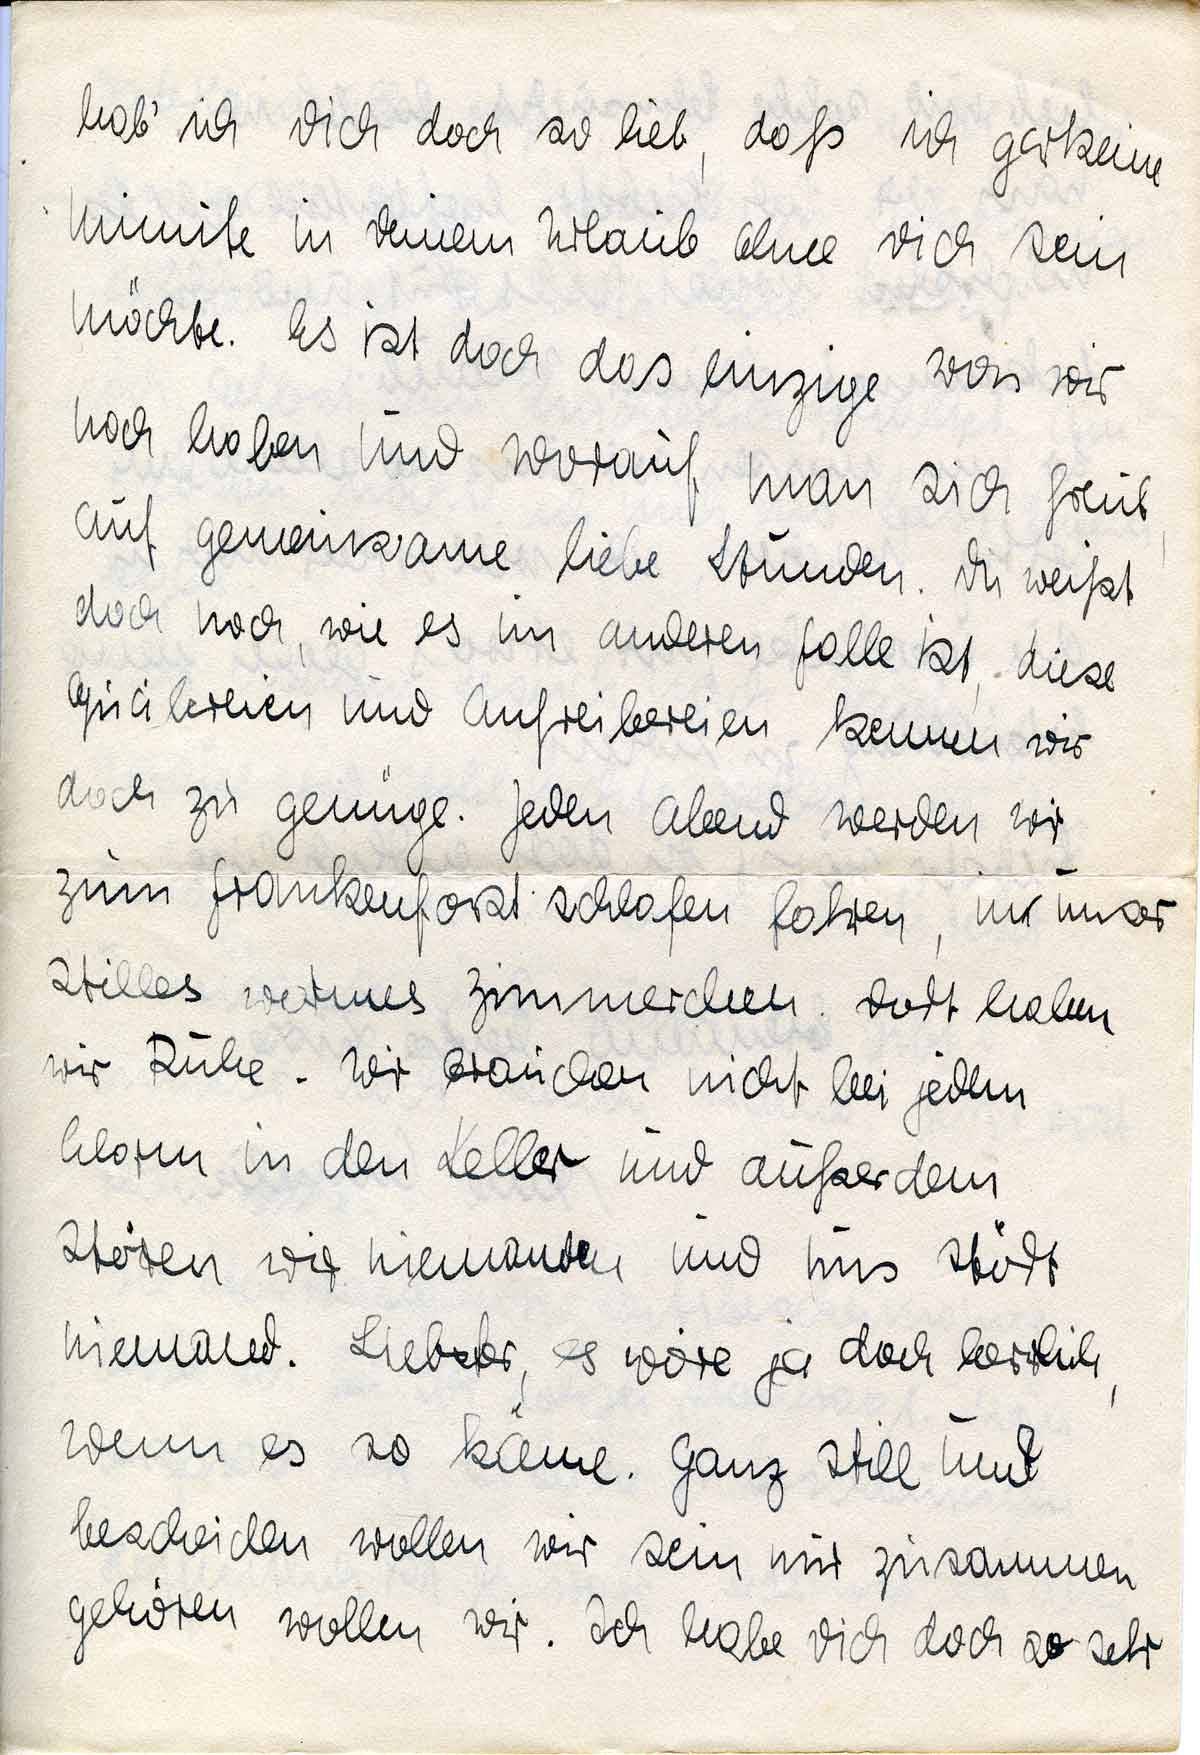 hab' ich dich doch so lieb, daß ich garkeine
minute in deinem Urlaub ohne dich sein
möchte. Es ist doch das einzige was wir
noch haben und worauf man sich freut,
auf gemeinsame liebe Stunden. Du weißt
doch noch, wie es im anderen falle ist, diese
Quälereien und Aufreibereien kennen wir
doch zu genüge. Jeden Abend werden wir
zum frankenforst schlafen fahren, in unser
stilles warmes Zimmerchen. Dort haben
wir Ruhe. Wir brauchen nicht bei jedem
Alarm in den Keller und außerdem
stören wir niemanden und uns stört
niemand. Liebster, es wäre ja doch herrlich,
wenn es so käme. Ganz still und
bescheiden wollen wir sein nur zusammen
gehören wollen wir. Ich habe dich doch so sehr